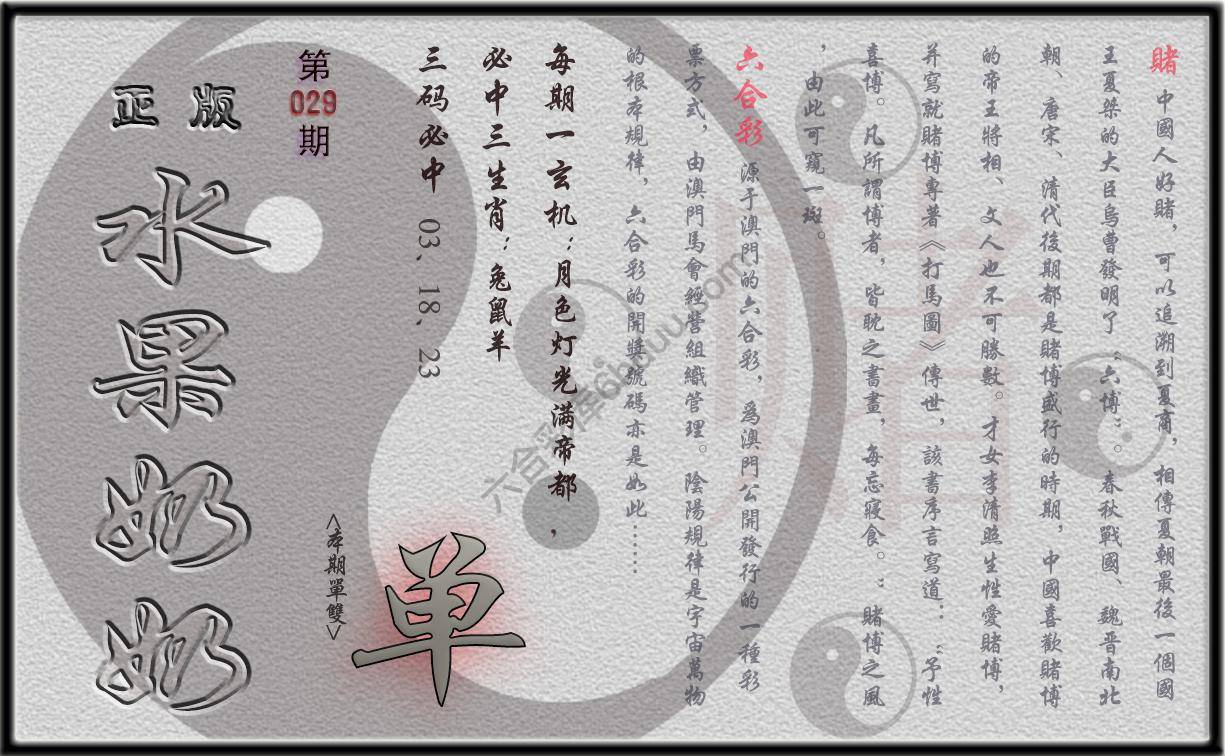 賭 中國人好賭，可以追溯到夏商，相傳夏朝最後一個國
王夏桀的大臣烏曹發明了“六博”。春秋戰國、魏晋南北
朝、唐宋、清代後期都是賭博盛行的時期，中國喜歡賭博
的帝王將相、文人也不可勝數。才女李清照生性愛賭博，
并寫就賭博專著《打馬圖》傳世，該書序言寫道：“予性
喜博。凡所謂博者，皆耽之書畫，每忘寢食。”賭博之風
，由此可窺一斑。
六合彩 源于澳門的六合彩，爲澳門公開發行的一種彩
票方式，由澳門馬會經營組織管理。陰陽規律是宇宙萬物
的根本規律，六合彩的開獎號碼亦是如此……
每期一玄机：月色灯光满帝都，
必中三生肖：兔鼠羊
三码必中 03、18、23
第029期
<本期單雙>
单
正版
水果奶奶
賭